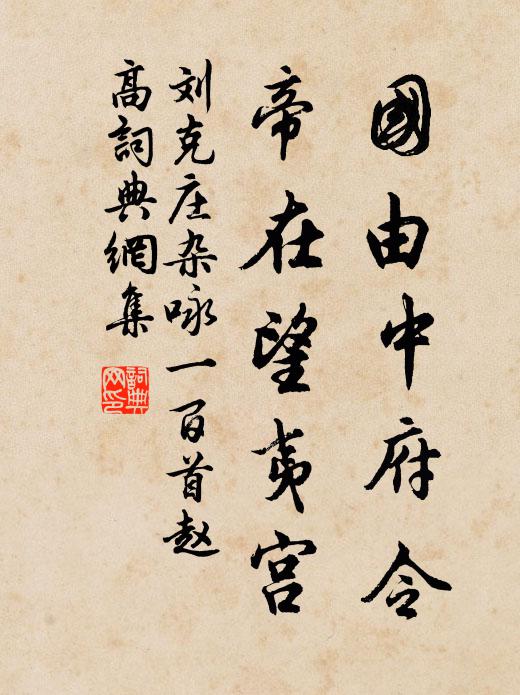 國由中府令
帝在望夷宫
刘克庄杂咏一百首赵
高詞典網集
詞典
网印